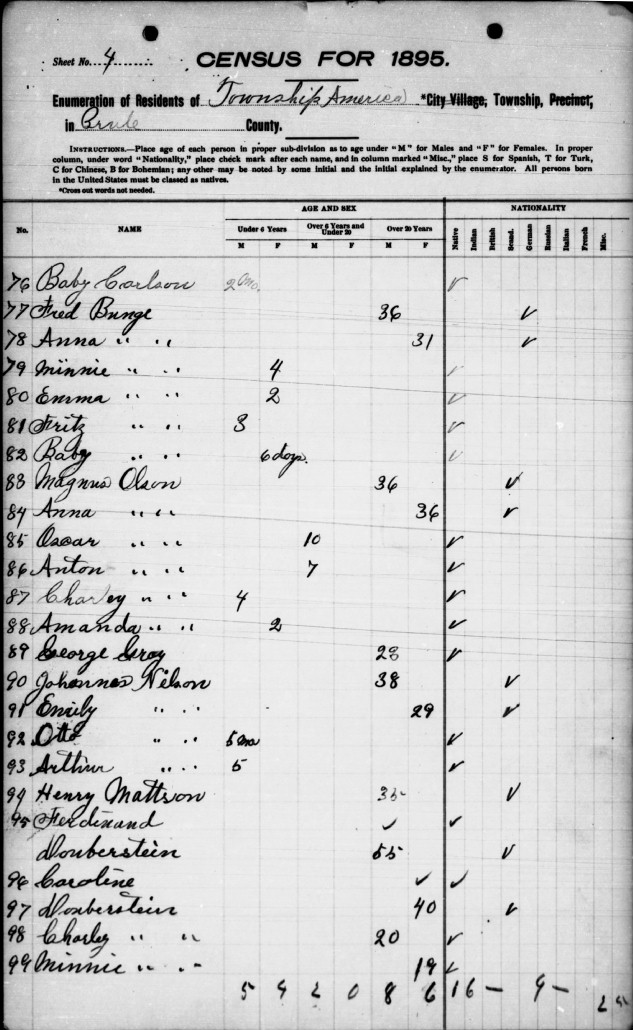 Sheet No. 4
CENSUS FOR 1895.
Enumeration of Residents of Township America *City Village, Township, Precinct,
in Brule County.
INSTRUCTIONS.—Place age of each person in proper sub-division as to age under "M" for Males and "F" for Females. In proper
column, under word "Nationality," place check mark after each name, and in column marked "Misc., place S for Spanish, T for Turk,
C for Chinese, B for Bohemian; any other may be noted by some initial and the initial explained by the enumerator. All persons born
in the United States must be classed as natives.
*Cross out words not needed.
AGE AND SEX NATIONALITY
No. NAME Under 6 Years Over 6 Years and Under 20 Over 20 Years Native Indian British Scand. German Russian Italian French Misc.
M F M F M F
76 Baby Carlson 2 Mo. ✓
77 Fred Bunge 36 ✓
78 Anna " " 31 ✓
79 Minnie " " 4 ✓
80 Emma " " 2 ✓
81 Fritz " " 3 ✓
82 Baby " " 6 days. ✓
83 Magnus Olson 36 ✓
84 Anna " " 36 ✓
85 Oscar " " 10 ✓
86 Anton " " 7 ✓
87 Charley " " 4 ✓
88 Amanda " " 2 ✓
89 George Gray 28 ✓
90 Johannes Nilson 38 ✓
91 Emily " " 29 ✓
92 Otto " " 5 Mo ✓
93 Arthur " " 5 ✓
94 Henry Mattson 35 ✓
95 Ferdinand ✓ ✓
Douberstein 55 ✓
96 Caroline ✓ ✓
97 Douberstein 40 ✓
98 Charley " " 20 ✓
99 Minnie " " 19 ✓
5 4 2 0 8 6 16 — 9 —